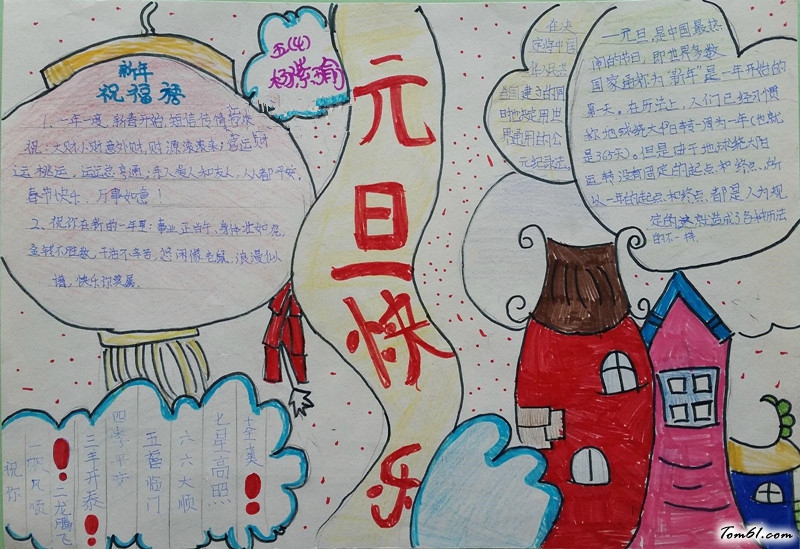 五(4)
杨紫瑜
元旦快乐
新年
祝福语
1、一年一度,新春开始,短信传情
祝:大财小财意外财,财源滚滚来;官运财
运桃运,运运亨通;亲人爱人和友人,人人都平安,
春节快乐,万事如意!
2、祝你在新的一年里:事业正当午,身体壮如虎,
金钱不胜数,干活不辛苦,悠闲像老鼠,浪漫似
谱,快乐你莫属。
在决
定将中国
华人民共
和国建立的同
时也决定用世
界通用的公
元纪年法。
一元旦,是中国最热
闹的节日,即世界多数
国家通称为"新年"是一年开始的
第一天。在历法上,人们已经习惯
称地球绕太阳转一周为一年(也就
是365天)。但是由于地球绕太阳
运转没有固定的起点和终点,所
以一年的起点和终点,都是人为规
定的就造成了各种历法
的不一样
祝你
一帆风顺
二龙腾飞
三羊开泰
四季平安
五福临门
六六大顺
七星高照
十全美
Tom61.com